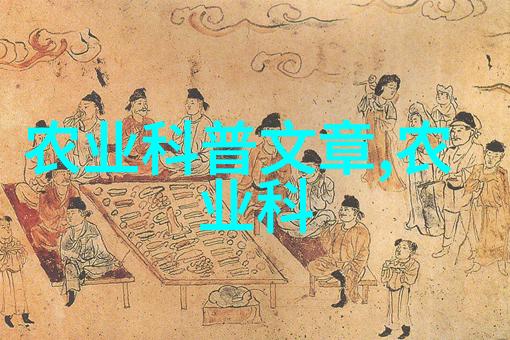 农业科普文章,农
业科